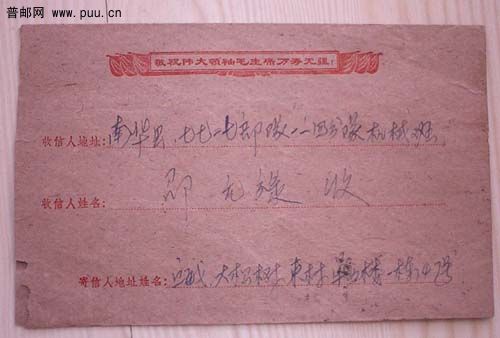 普邮网
www.puu.cn
敬祝伟大领袖毛主席万寿无疆!
收信人地址: 南华县 七七一七部队 二四分队 机械
收信人姓名: 邵元 收
寄信人地址姓名: 大松树 东村 楼一栋47号